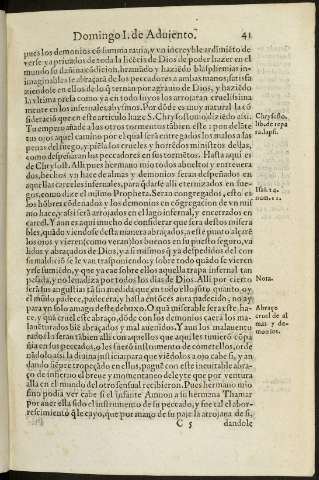 Domingo I. de Aduiento. 41
pues los demonios cõ summa rauia, y vn increyble ardimiẽto de
verse ya priuados de toda la licẽcia de Dios de poder hazer en el
mundo su dañina cõdicion, bramãdo y haziẽdo blasphemias in-
imaginables se abraçarã de los peccadores a ambas manos, satisfa
ziendose en ellos de lo q̃ ternan por agrauio de Dios, y haziẽdo
la vltima presa como ya en todo suyos los arrojaràn cruelissima
mente en los infernales abysmos. Por dõde es muy natural la cõ
sideraciõ que en este articulo haze S. Chrysostomo diziẽdo assi.
Tu empero añade a los otros tormentos tãbien este: pon delãte
tus ojos aquel camino por el qual seràn traydos los malos a las
penas del fuego, y piẽsa los crueles y horrẽdos ministros della,
como despeñaràn los peccadores en sus tormẽtos. Hasta aqui es
de Chrysost. Alli pues hermano mio todos abueltos y entreuera
dos, hechos vn haze de almas y demonios seran despeñados en
aquellas carceles infernales, para q̃ darse alli eternizados en fue-
gos, como dize el mismo Propheta. Seran congregados, esto es
los hõbres cõdenados y los demonios en cõgregacion de vn mis
mo haze, y assi serà arrojados en el lago infernal, y encerrados en
carcel. Y aun es aqui mucho de considerar que seràn destos misera
bles, quãdo viendose desta manera abraçados, a este puncto alçarã
los ojos y vieren (como veran) los buenos en su puesto seguro, va
lidos y abraçados de Dios, y a si mismos q̃ ya despedidos del con
su maldiciõ se le van trasponiendo, y sobre todo quãdo se vieren
yr sumiẽdo, y que ya cae sobre ellos aquella trapa infernal tan
pesada, y no leuadiza por todos los dias de Dios. Alli por cierto
seràn las angustias tã sin medida que en todo ello justo quanto, oy,
el mũdo padece, padecera, y hasta entõces aura padecido, no ay
para vn solo amago deste debuxo. O quã miserable sera este ha-
ze, y quã cruel este abraço, dõde con los demonios caerà los ma-
lauẽturados biẽ abraçados y mal auenidos. Y aun los malauentu
rados se seràn tãbien alli con aquellos que aqui les tuuierõ cõpa
ñia en sus peccados, o les fuerõ instrumento de cometellos, ordẽ
nãdolo assi la diuina justicia para que viẽdolos a ojo cabe si, y an-
dando siẽpre tropeçãdo en ellos, pague con este incuitable abra-
ço de infierno el breue y momentaneo deleyte que por ventura
alla en el mundo del otro sensual recibieron. Pues hermano mio
sino podia ver cabe si el infante Amnon a su hermana Thamar
por auer ella sido el instrumento de su peccado, y fue tal el abor-
rescimiento q̃ le cayo, que por mano de su paje la arrojaua de si,
C 5 dandole
Chrysosto.
lib. de repa
ra. lapsi.
Isai. 24.
num. 22.
Nota.
Abraço
cruel de al
mas y de-
monios.